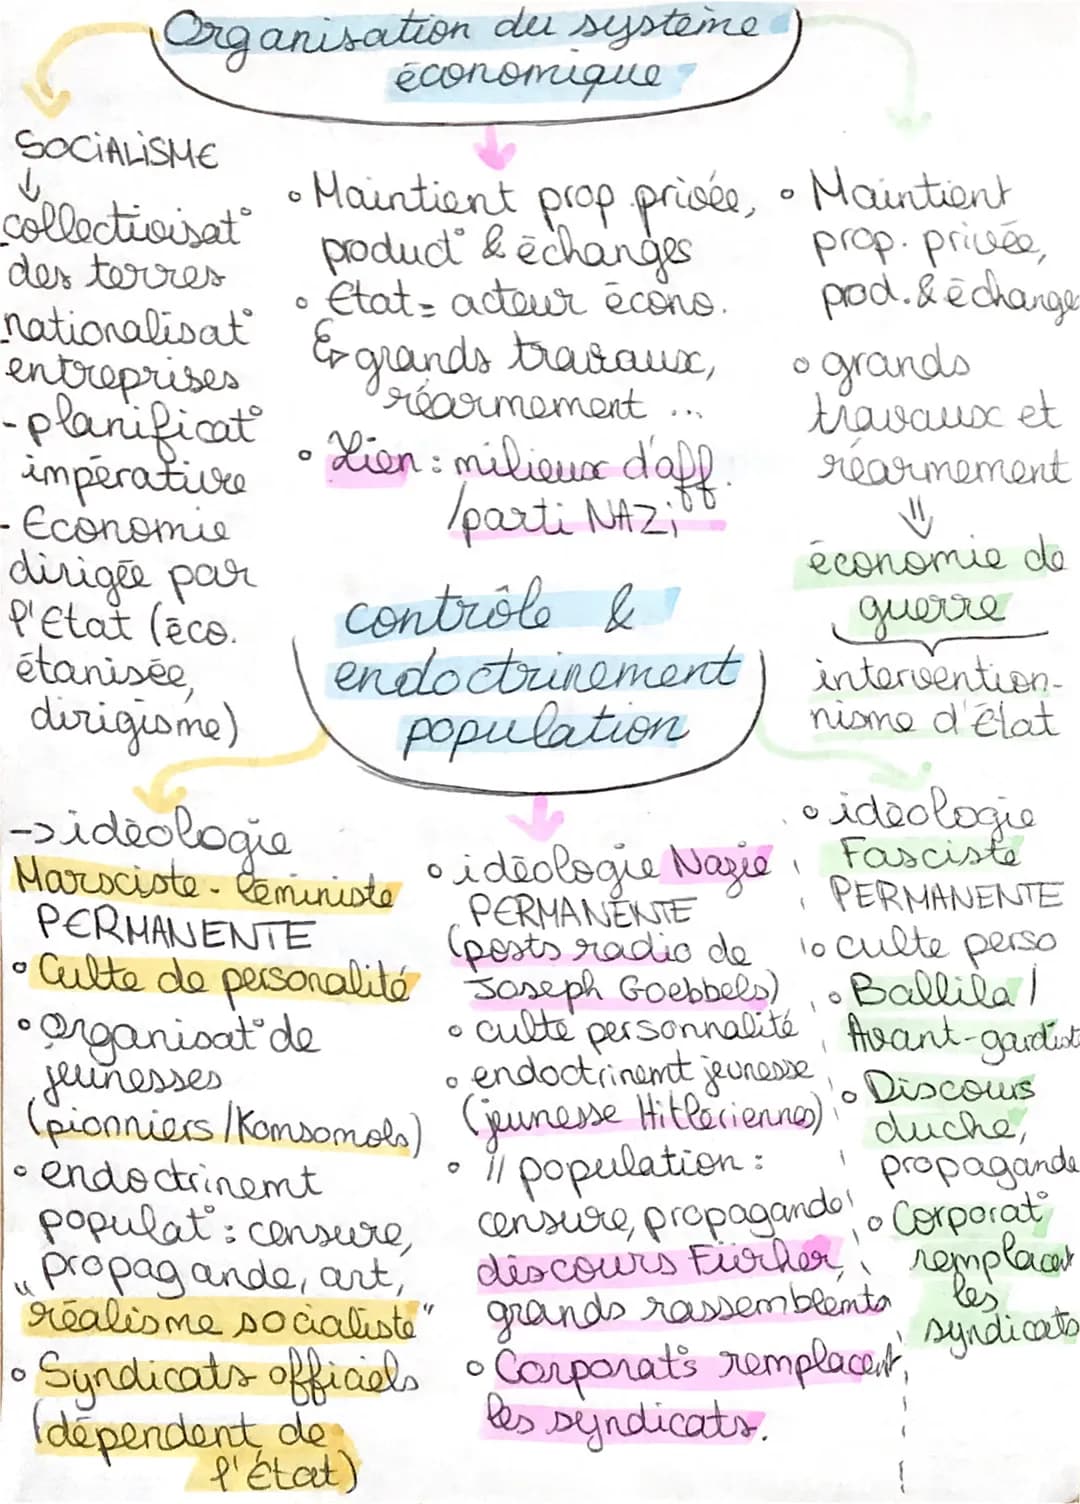 Organisation du système
économique
SOCiALiSME
↓
collectivisat°
des terres
nationalisat°
entreprises
-planificat°
impérative
- Economie
dirigée par
l'Etat (éco.
étanisée,
dirigisme)
◦ Maintient prop.privée,
product° & échanges
◦ Etat= acteur écono.
↳ grands travaux,
réarmement ...
◦ Lien : milieux d'aff.
/parti NAZi
◦ Maintient
prop. privée,
prod.& échange
◦ grands
travaux et
réarmement
⇓
économie de
guerre
intervention-
nisme d'État
contrôle &
endoctrinement
population
-> idéologie
Marxciste - Léministe
PERMANENTE
◦ Culte de personalité
◦ organisat° de
jeunesses
(pionniers /Komsomols)
◦ endoctrinemt
populat° : censure,
propagande, art,
"réalisme socialiste"
◦ Syndicats officiels
(dépendent de
l'État)
◦ idéologie Nazie
PERMANENTE
(posts radio de
Joseph Goebbels)
◦ culte personnalité
◦ endoctrinemt jeunesse
(jeunesse Hitlériennes)
◦ // population :
censure, propagande
discours Fürher,
grands rassemblents
◦ Corporat°s remplacent
les syndicats.
◦ idéologie
Fasciste
PERMANENTE
◦ culte perso
◦ Ballila /
Avant-gardist
◦ Discours
duche,
propagande
◦ Corporat°
remplacent
les
syndicats